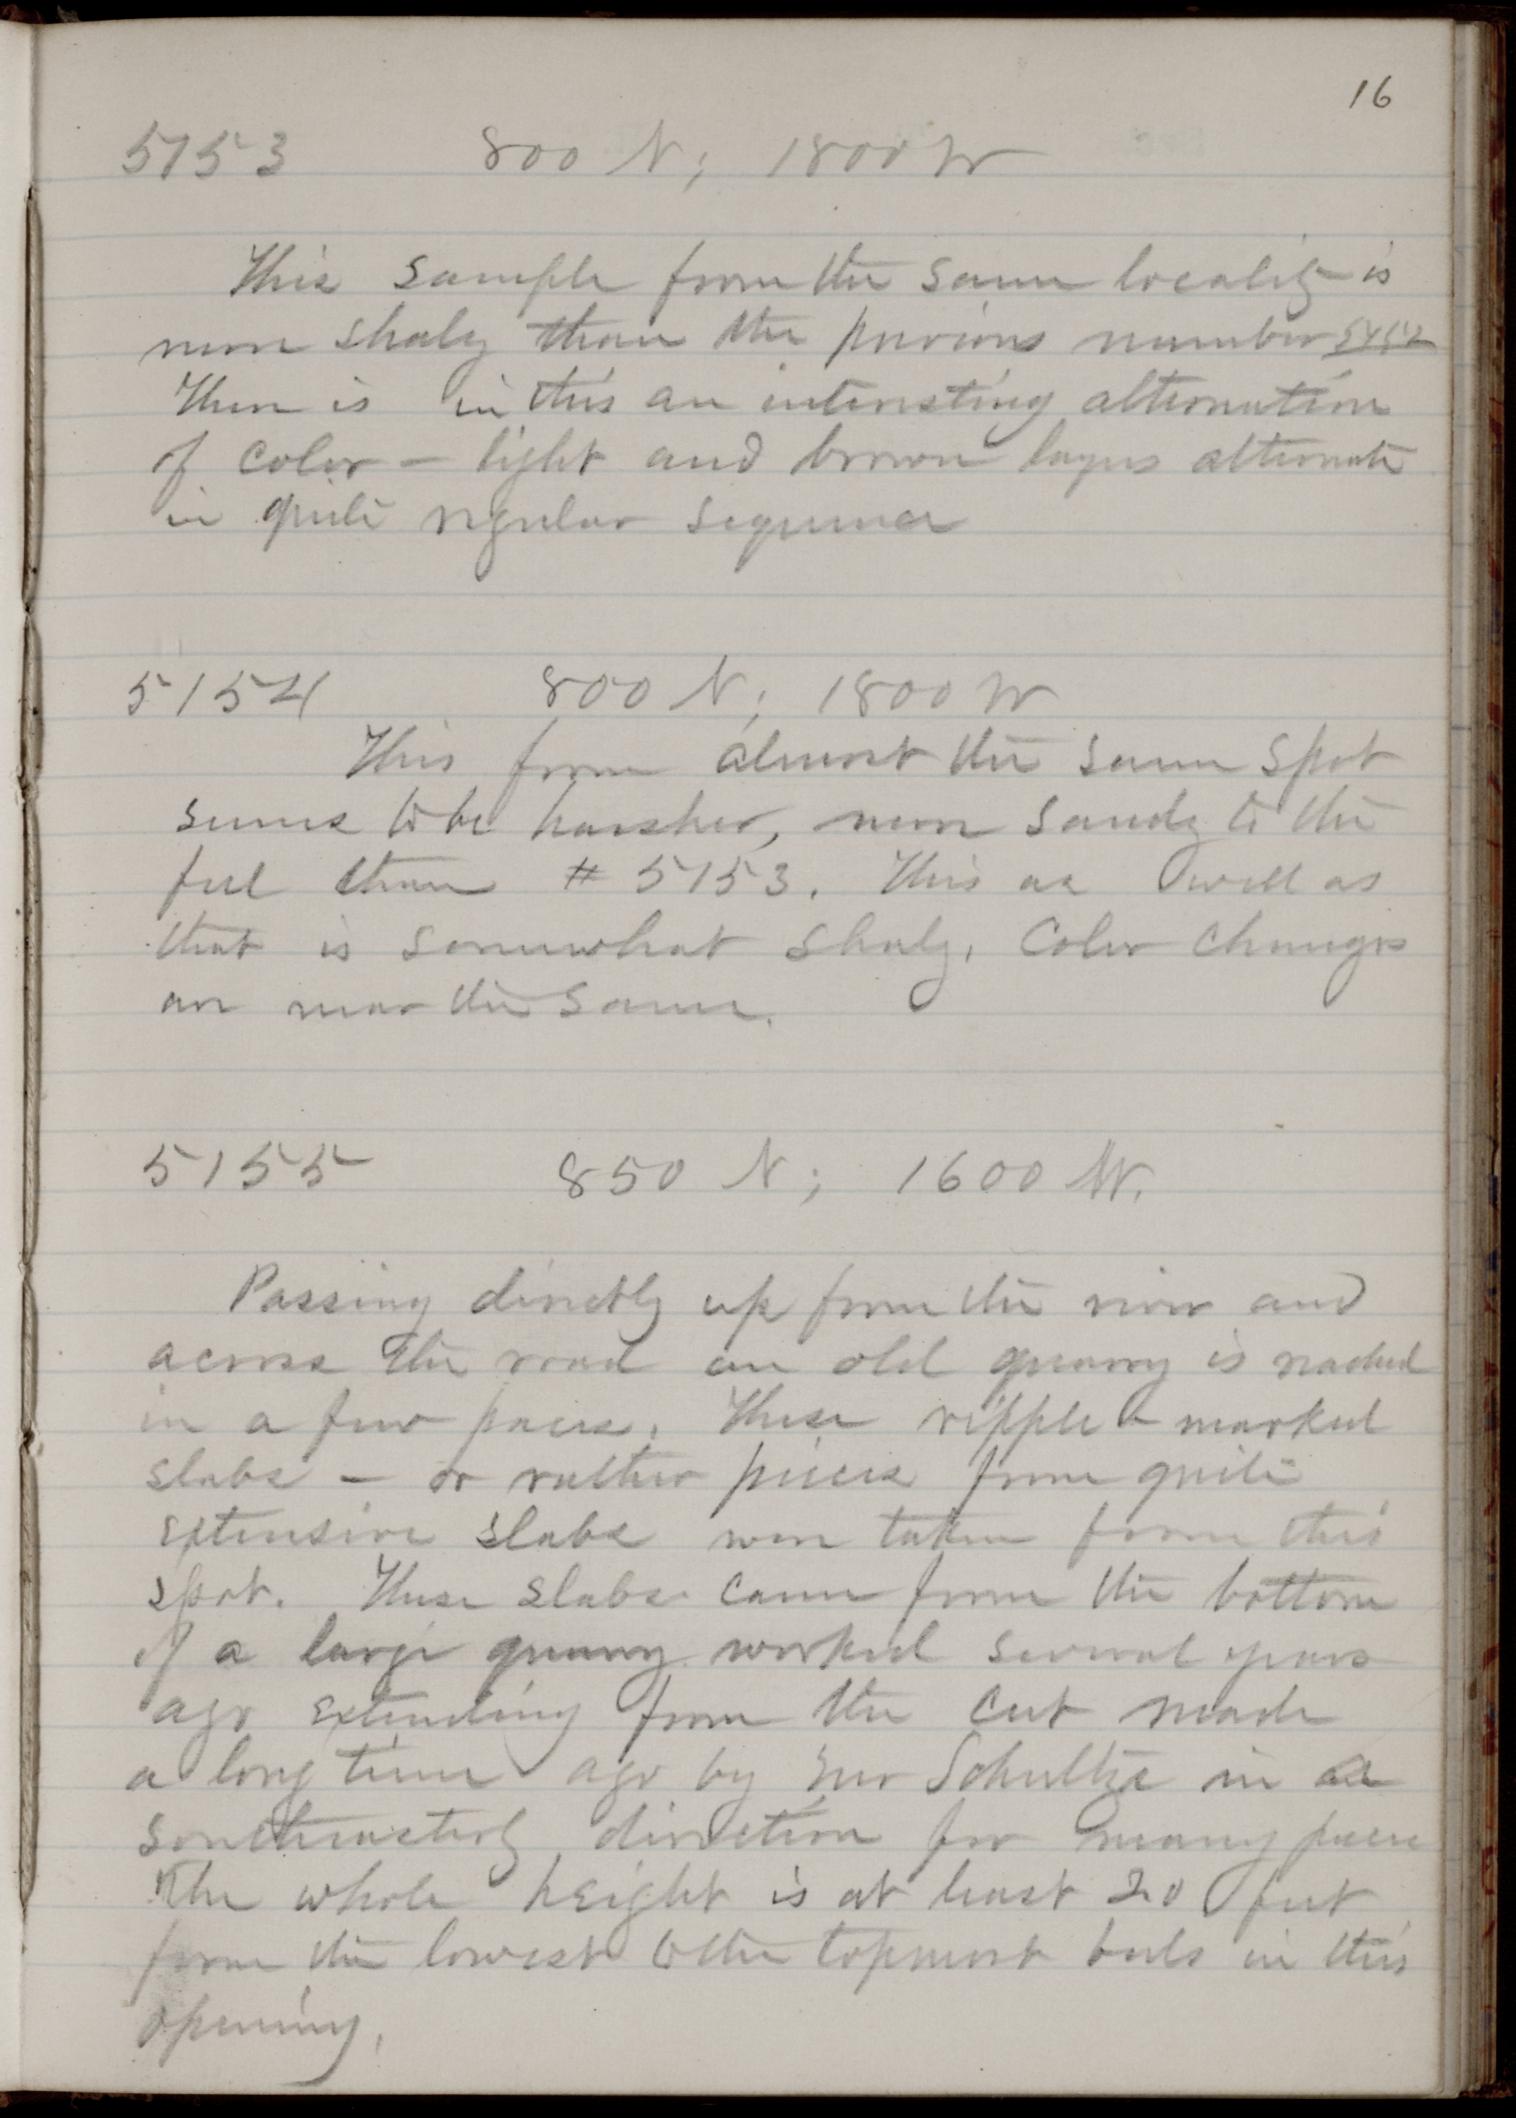 16
5153 800 N; 1800 W
This sample from the same locality is
more shaly than the previous number 5152
There is in this an interesting alternation
of color – light and brown layers alternate
in quite regular sequence
5154 800 N; 1800 W
This from almost the same spot
seems to be harsher, more sandy to the
feel than # 5153. This as well as
that is somewhat shaly. Color changes
are near the same.
5155 850 N; 1600 W.
Passing directly up from the river and
across the road an old quarry is reached
in a few paces. These ripple-marked
slabs – or rather pieces from quite
extensive slabs were taken from this
spot. These slabs came from the bottom
of a large quarry worked several years
ago extending from the cut made
a long time ago by Schultze in a
southeasterly direction for many paces
The whole height is at least 20 feet
from the lowest to the topmost beds in this
opening.